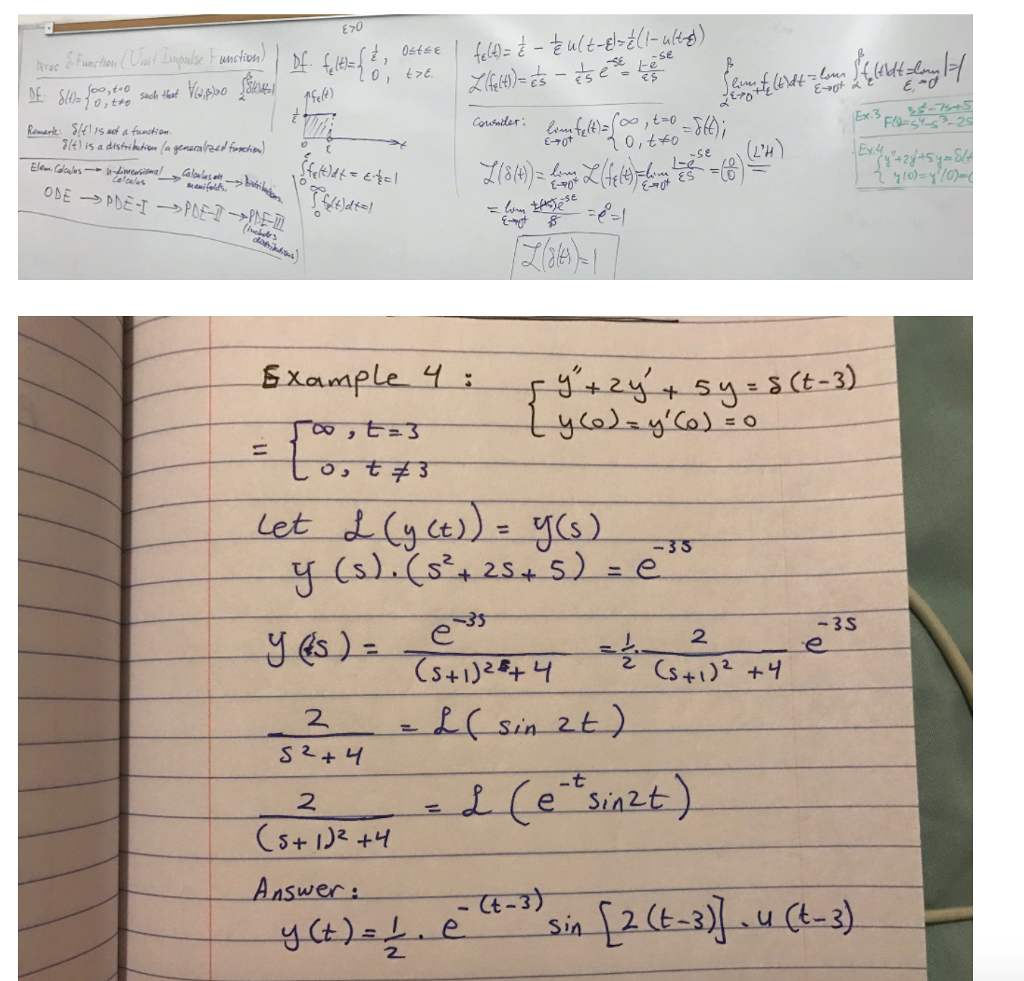 ε>0
δ Function (Unit Impulse Function)
Df. δ(t)={∞, t=0
0, t≠0 such that ∀(α,β)∋0 ∫δ(t)dt=1
Remark: δ(t) is not a function.
δ(t) is a distribution (a generalized function)
Elem. Calculus → n-dimensional Calculus → Calculus on manifolds → distributions.
ODE → PDE-I → PDE-II → PDE-III
(includes distributions)
Df. f_ε(t)={1/ε, 0≤t≤ε
0, t>ε.
f_ε(t)
1/ε
0 ε t
∫_0^ε f_ε(t)dt=ε·1/ε=1
∫_0^∞ f_ε(t)dt=1
f_ε(t)=1/ε - 1/ε u(t-ε)=1/ε(1-u(t-ε))
ℒ(f_ε(t))=1/εs - 1/εs e^-sε = (1-e^-sε)/εs
Consider: lim_ε→0+ f_ε(t)={∞, t=0
0, t≠0 =δ(t);
ℒ(δ(t))=lim_ε→0+ ℒ(f_ε(t))=lim_ε→0+ (1-e^-sε)/εs=(0/0) (L'H) =
=lim_ε→0+ e^-sε = e^0=1
ℒ(δ(t))=1
∫_α^β lim_ε→0+ f_ε(t)dt=lim_ε→0+ ∫_α^β f_ε(t)dt=lim_ε→0+ 1=1
Ex.3 F(s)=
Ex.4 {y''+2y'+5y=δ(t
y(0)=y'(0)=
Example 4 : { y'' + 2y' + 5y = δ(t-3)
y(0) = y'(0) = 0
= { ∞, t=3
0, t≠3
Let ℒ(y(t)) = y(s)
y(s).(s²+2s+5) = e^-3s
y(s) = e^-3s / (s+1)2 + 4 = 1/2 . 2 / (s+1)² + 4 e^-3s
2 / s²+4 = ℒ( sin 2t )
2 / (s+1)²+4 = ℒ( e^-t sin2t )
Answer :
y(t) = 1/2 . e^-(t-3) sin [2(t-3)] . u(t-3)